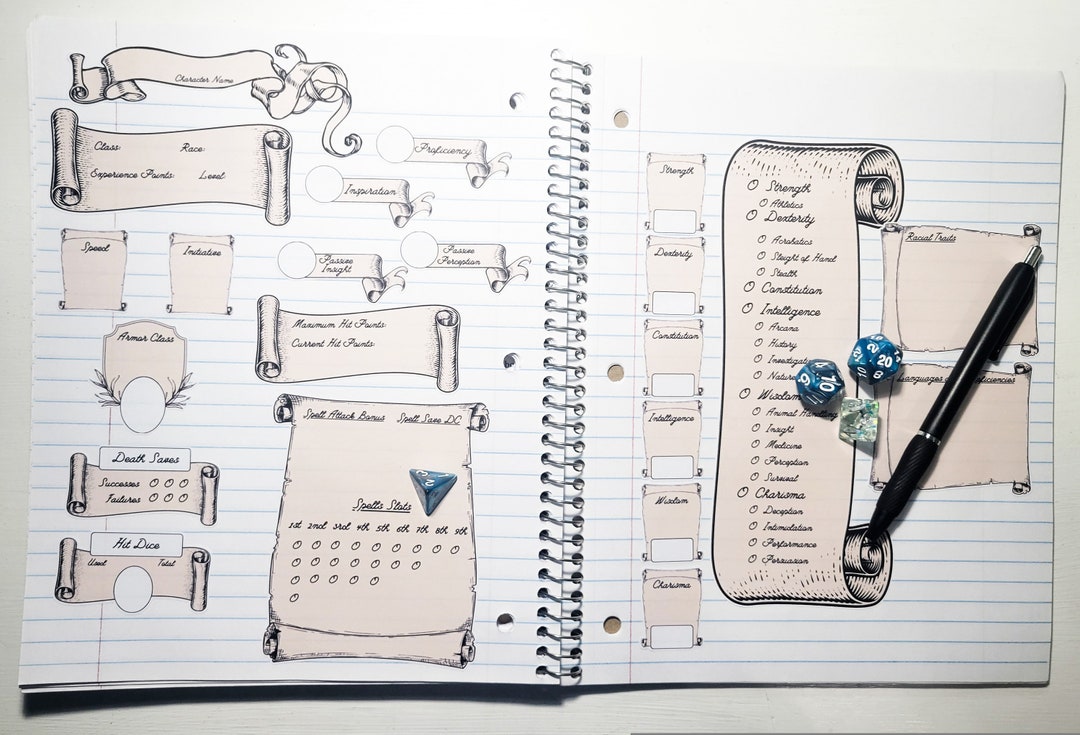 Character Name
Class: Race:
Experience Points: Level:
Proficiency
Inspiration
Speed
Initiative
Passive
Insight
Passive
Perception
Armor Class
Maximum Hit Points:
Current Hit Points:
Spell Attack Bonus Spell Save DC
Death Saves
Successes
Failures
Spells Slots
1st 2nd 3rd 4th 5th 6th 7th 8th 9th
Hit Dice
Used Total
Strength
Dexterity
Constitution
Intelligence
Wisdom
Charisma
Strength
Athletics
Dexterity
Acrobatics
Sleight of Hand
Stealth
Constitution
Intelligence
Arcana
History
Nature
Wisdom
Animal Handling
Insight
Medicine
Perception
Survival
Charisma
Deception
Intimidation
Performance
Persuasion
Racial Traits
Languages
10
20